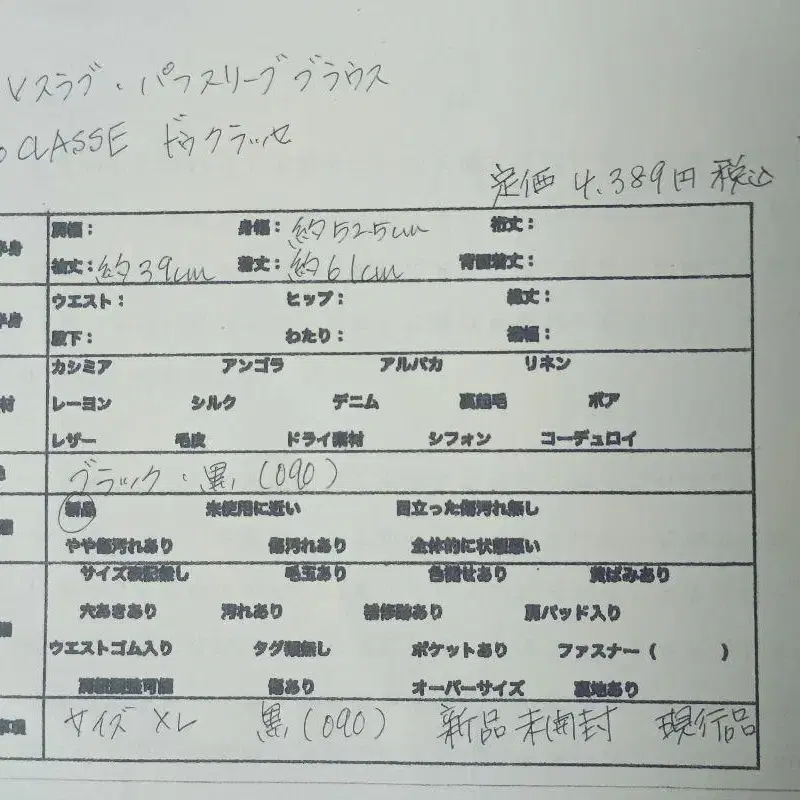 Vスラブ・パフスリーブブラウス
CLASSE ドゥクラッセ
定価 4.389円 税込
半身 肩幅： 身幅：約52.5cm 裄丈：
袖丈：約39cm 着丈：約61cm 背面着丈：
半身 ウエスト： ヒップ： 総丈：
股下： わたり： 裾幅：
カシミア アンゴラ アルパカ リネン
材 レーヨン シルク デニム 裏起毛 ボア
レザー 毛皮 ドライ素材 シフォン コーデュロイ
ブラック・黒(090)
新品 未使用に近い 目立った傷汚れ無し
やや傷汚れあり 傷汚れあり 全体的に状態悪い
サイズ表記無し 毛玉あり 色褪せあり 黄ばみあり
穴あきあり 汚れあり 補修跡あり 肩パッド入り
ウエストゴム入り タグ類無し ポケットあり ファスナー（ ）
肩紐調整可能 傷あり オーバーサイズ 裏地あり
事項 サイズ XL 黒(090) 新品未開封 現行品